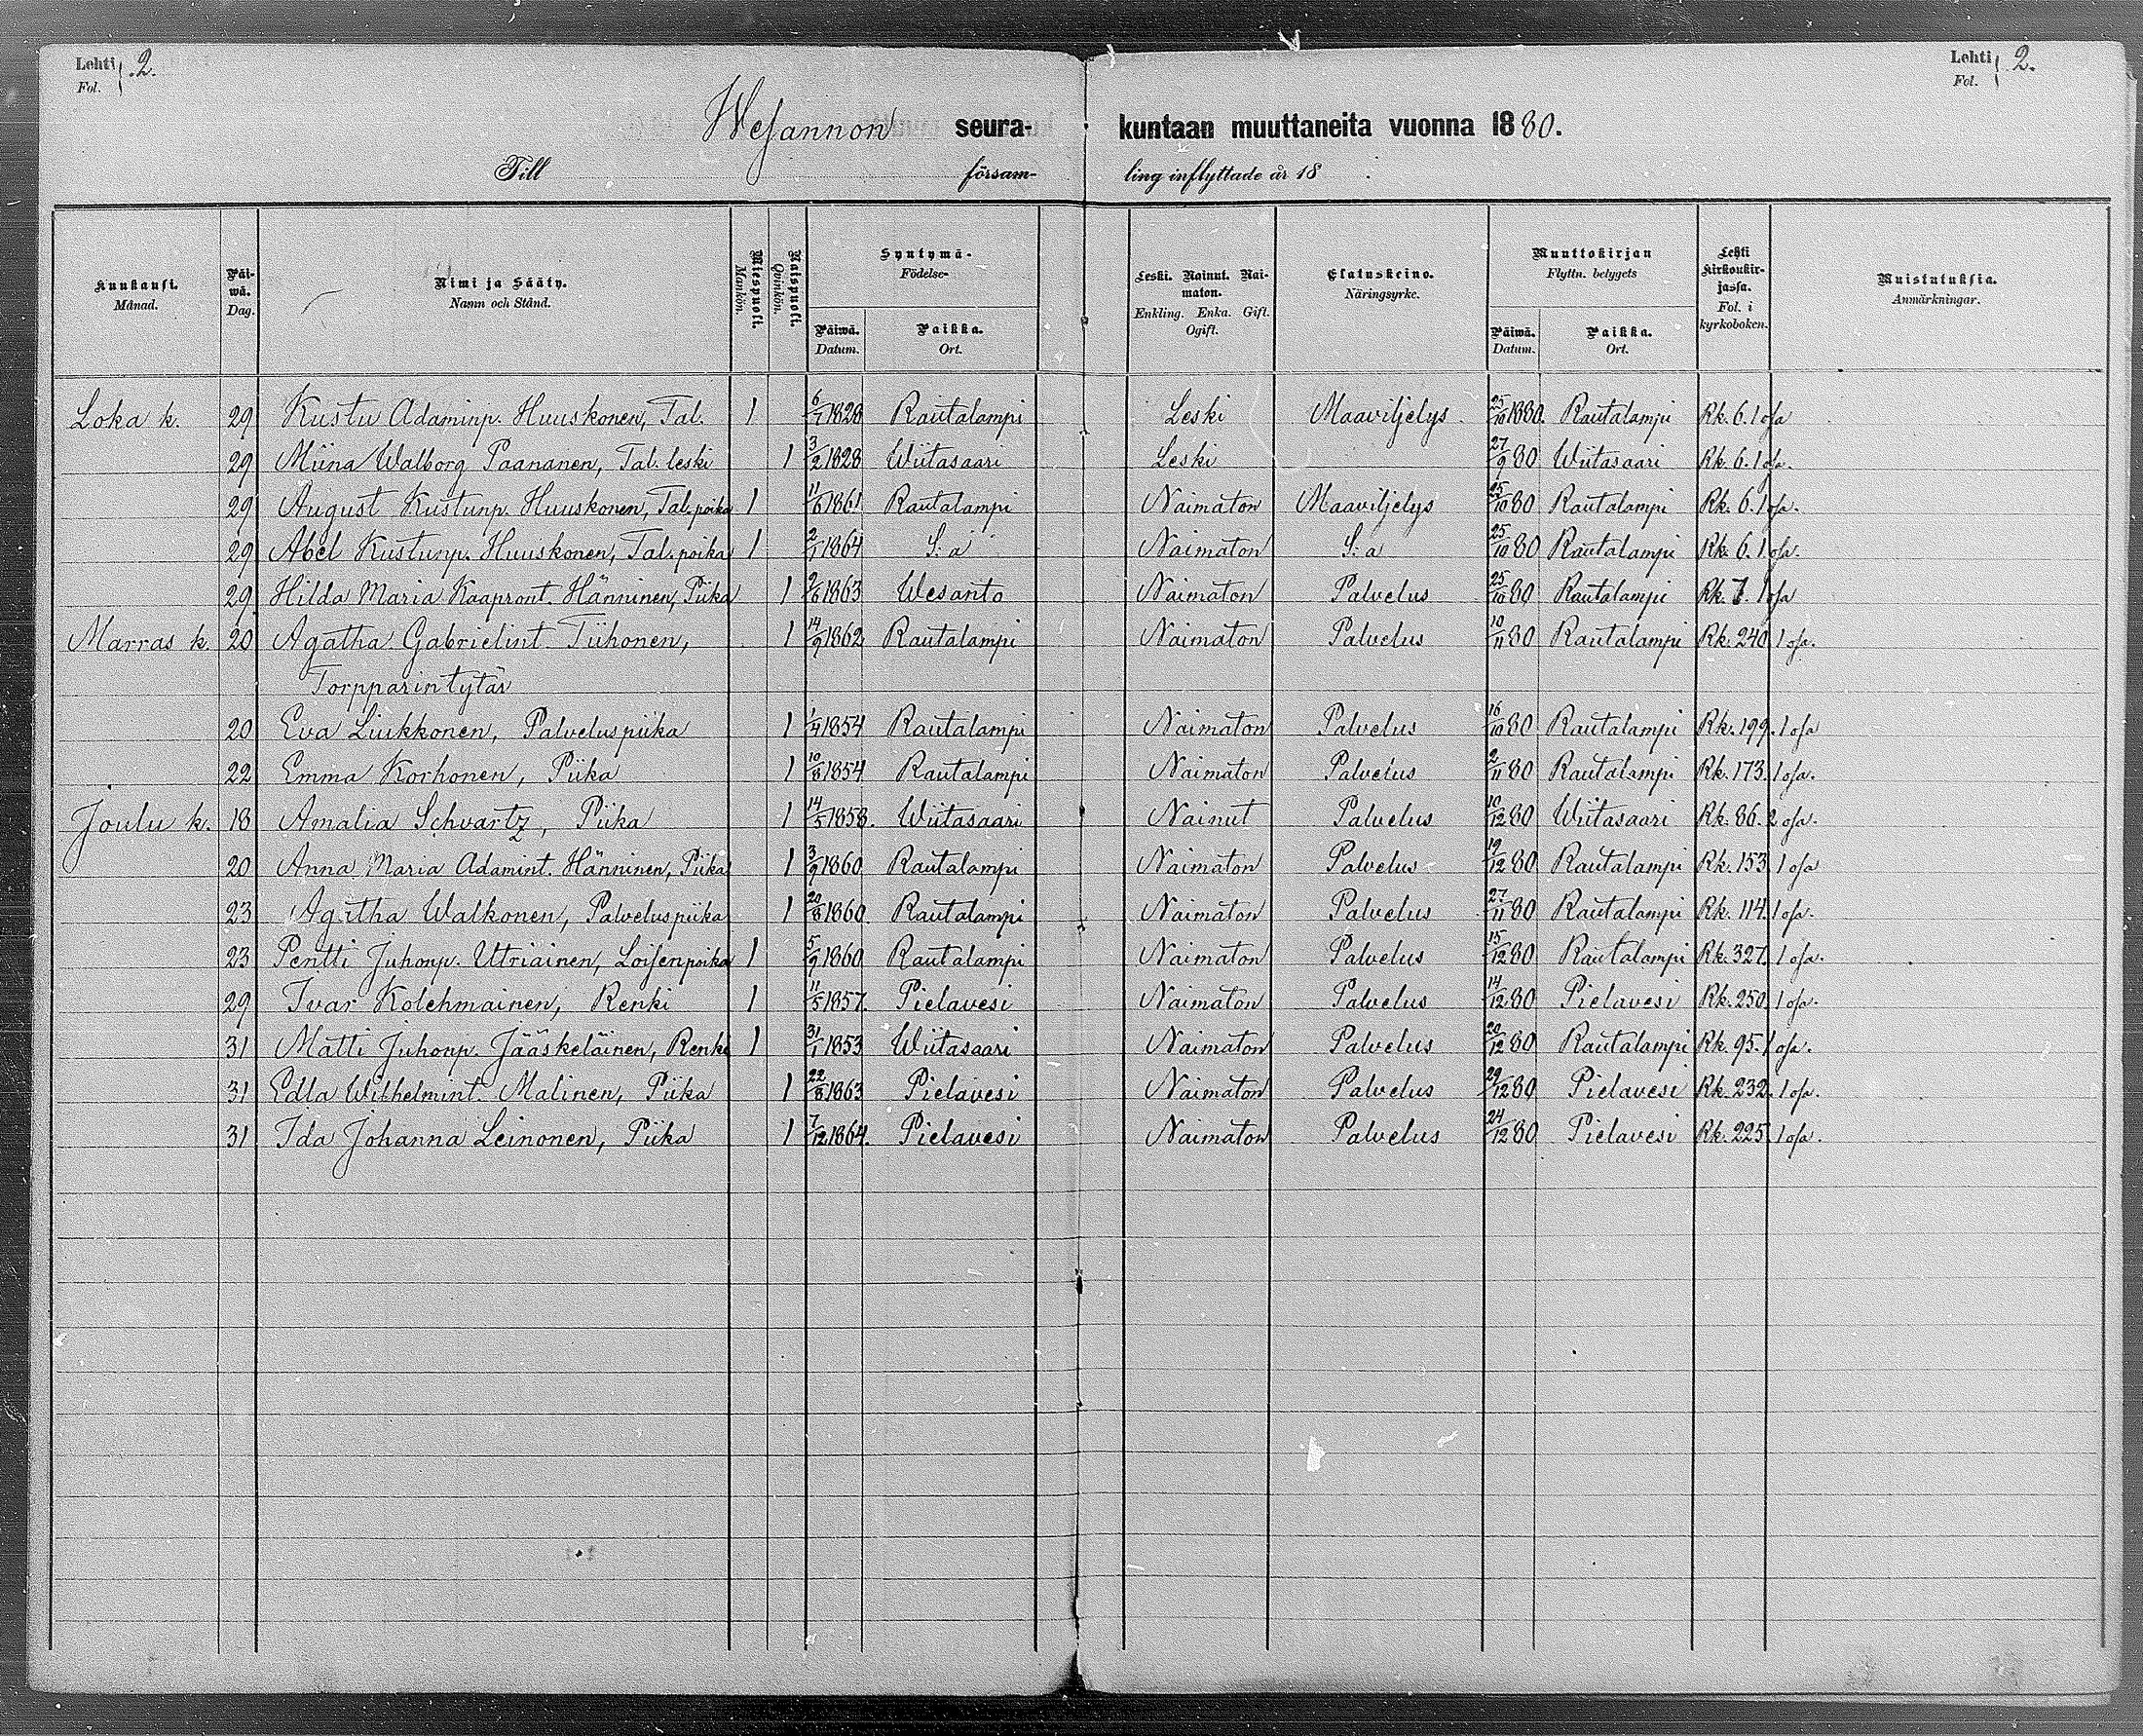 Lehti 2. Lehti 2.
Fol. Fol.
Wesannon seura- kuntaan muuttaneita vuonna 1880.
Till försam- ling inflyttade år 18 .
Kuukausi. Månad. Päiwä. Dag. Nimi ja Sääty. Namn och Stånd. Miespuoli. Mankön. Naispuoli. Qvinkön. Syntymä- Födelse- Päiwä. Datum. Paikka. Ort. Leski. Nainut. Naimaton. Enkling. Enka. Gift. Ogift. Elatuskeino. Näringsyrke. Muuttokirjan Flyttn. betygets Päiwä. Datum. Paikka. Ort. Lehti Kirkonkirjassa. Fol. i kyrkoboken. Muistutuksia. Anmärkningar.
Loka k. 29 Kustu Adaminp. Huuskonen, Tal. 1 6/1 1828 Rautalampi Leski Maaviljelys. 25/10 1880. Rautalampi Rk. 6. 1 osa
29 Miina Walborg Paananen, Tal. leski 1 3/2 1828 Wiitasaari Leski 27/9 80 Wiitasaari Rk. 6. 1 osa.
29 August Kustunp. Huuskonen, Tal. poika 1 11/6 1861 Rautalampi Naimaton Maaviljelys 25/10 80 Rautalampi Rk. 6. 1 osa.
29 Abel Kustunp. Huuskonen, Tal. poika 1 2/1 1864 S: a Naimaton S: a 25/10 80 Rautalampi Rk. 6. 1 osa.
29 Hilda Maria Kaapront. Hänninen, Piika 1 2/6 1863 Wesanto Naimaton Palvelus 25/10 80 Rautalampi Rk. 7. 1 osa
Marras k. 20 Agatha Gabrielint. Tiihonen, 1 14/9 1862 Rautalampi Naimaton Palvelus 10/11 80 Rautalampi Rk. 240. 1 osa.
Torpparintytär
20 Eva Liukkonen, Palveluspiika 1 1/4 1854 Rautalampi Naimaton Palvelus 16/10 80 Rautalampi Rk. 199. 1 osa
22 Emma Korhonen, Piika 1 10/8 1854 Rautalampi Naimaton Palvelus 2/11 80 Rautalampi Rk. 173. 1 osa.
Joulu k. 18 Amalia Schvartz, Piika 1 14/5 1858. Wiitasaari Nainut Palvelus 10/12 80 Wiitasaari Rk. 86. 2 osa.
20 Anna Maria Adamint. Hänninen, Piika 1 3/9 1860 Rautalampi Naimaton Palvelus 19/12 80 Rautalampi Rk. 153. 1 osa
23 Agatha Walkonen, Palveluspiika 1 20/8 1860. Rautalampi Naimaton Palvelus 27/11 80 Rautalampi Rk. 114. 1 osa.
23 Pentti Juhonp. Utriainen, Loisenpoika 1 5/9 1860 Rautalampi Naimaton Palvelus 15/12 80 Rautalampi Rk. 327. 1 osa.
29 Ivar Kolehmainen, Renki 1 11/5 1857. Pielavesi Naimaton Palvelus 14/12 80 Pielavesi Rk. 250. 1 osa.
31 Matti Juhonp. Jääskeläinen, Renki 1 31/1 1853 Wiitasaari Naimaton Palvelus 20/12 80 Rautalampi Rk. 95. 1 osa.
31 Edla Wilhelmint. Malinen, Piika 1 22/8 1863 Pielavesi Naimaton Palvelus 29/12 80 Pielavesi Rk. 232. 1 osa.
31 Ida Johanna Leinonen, Piika 1 7/12 1864. Pielavesi Naimaton Palvelus 24/12 80 Pielavesi Rk. 225. 1 osa.